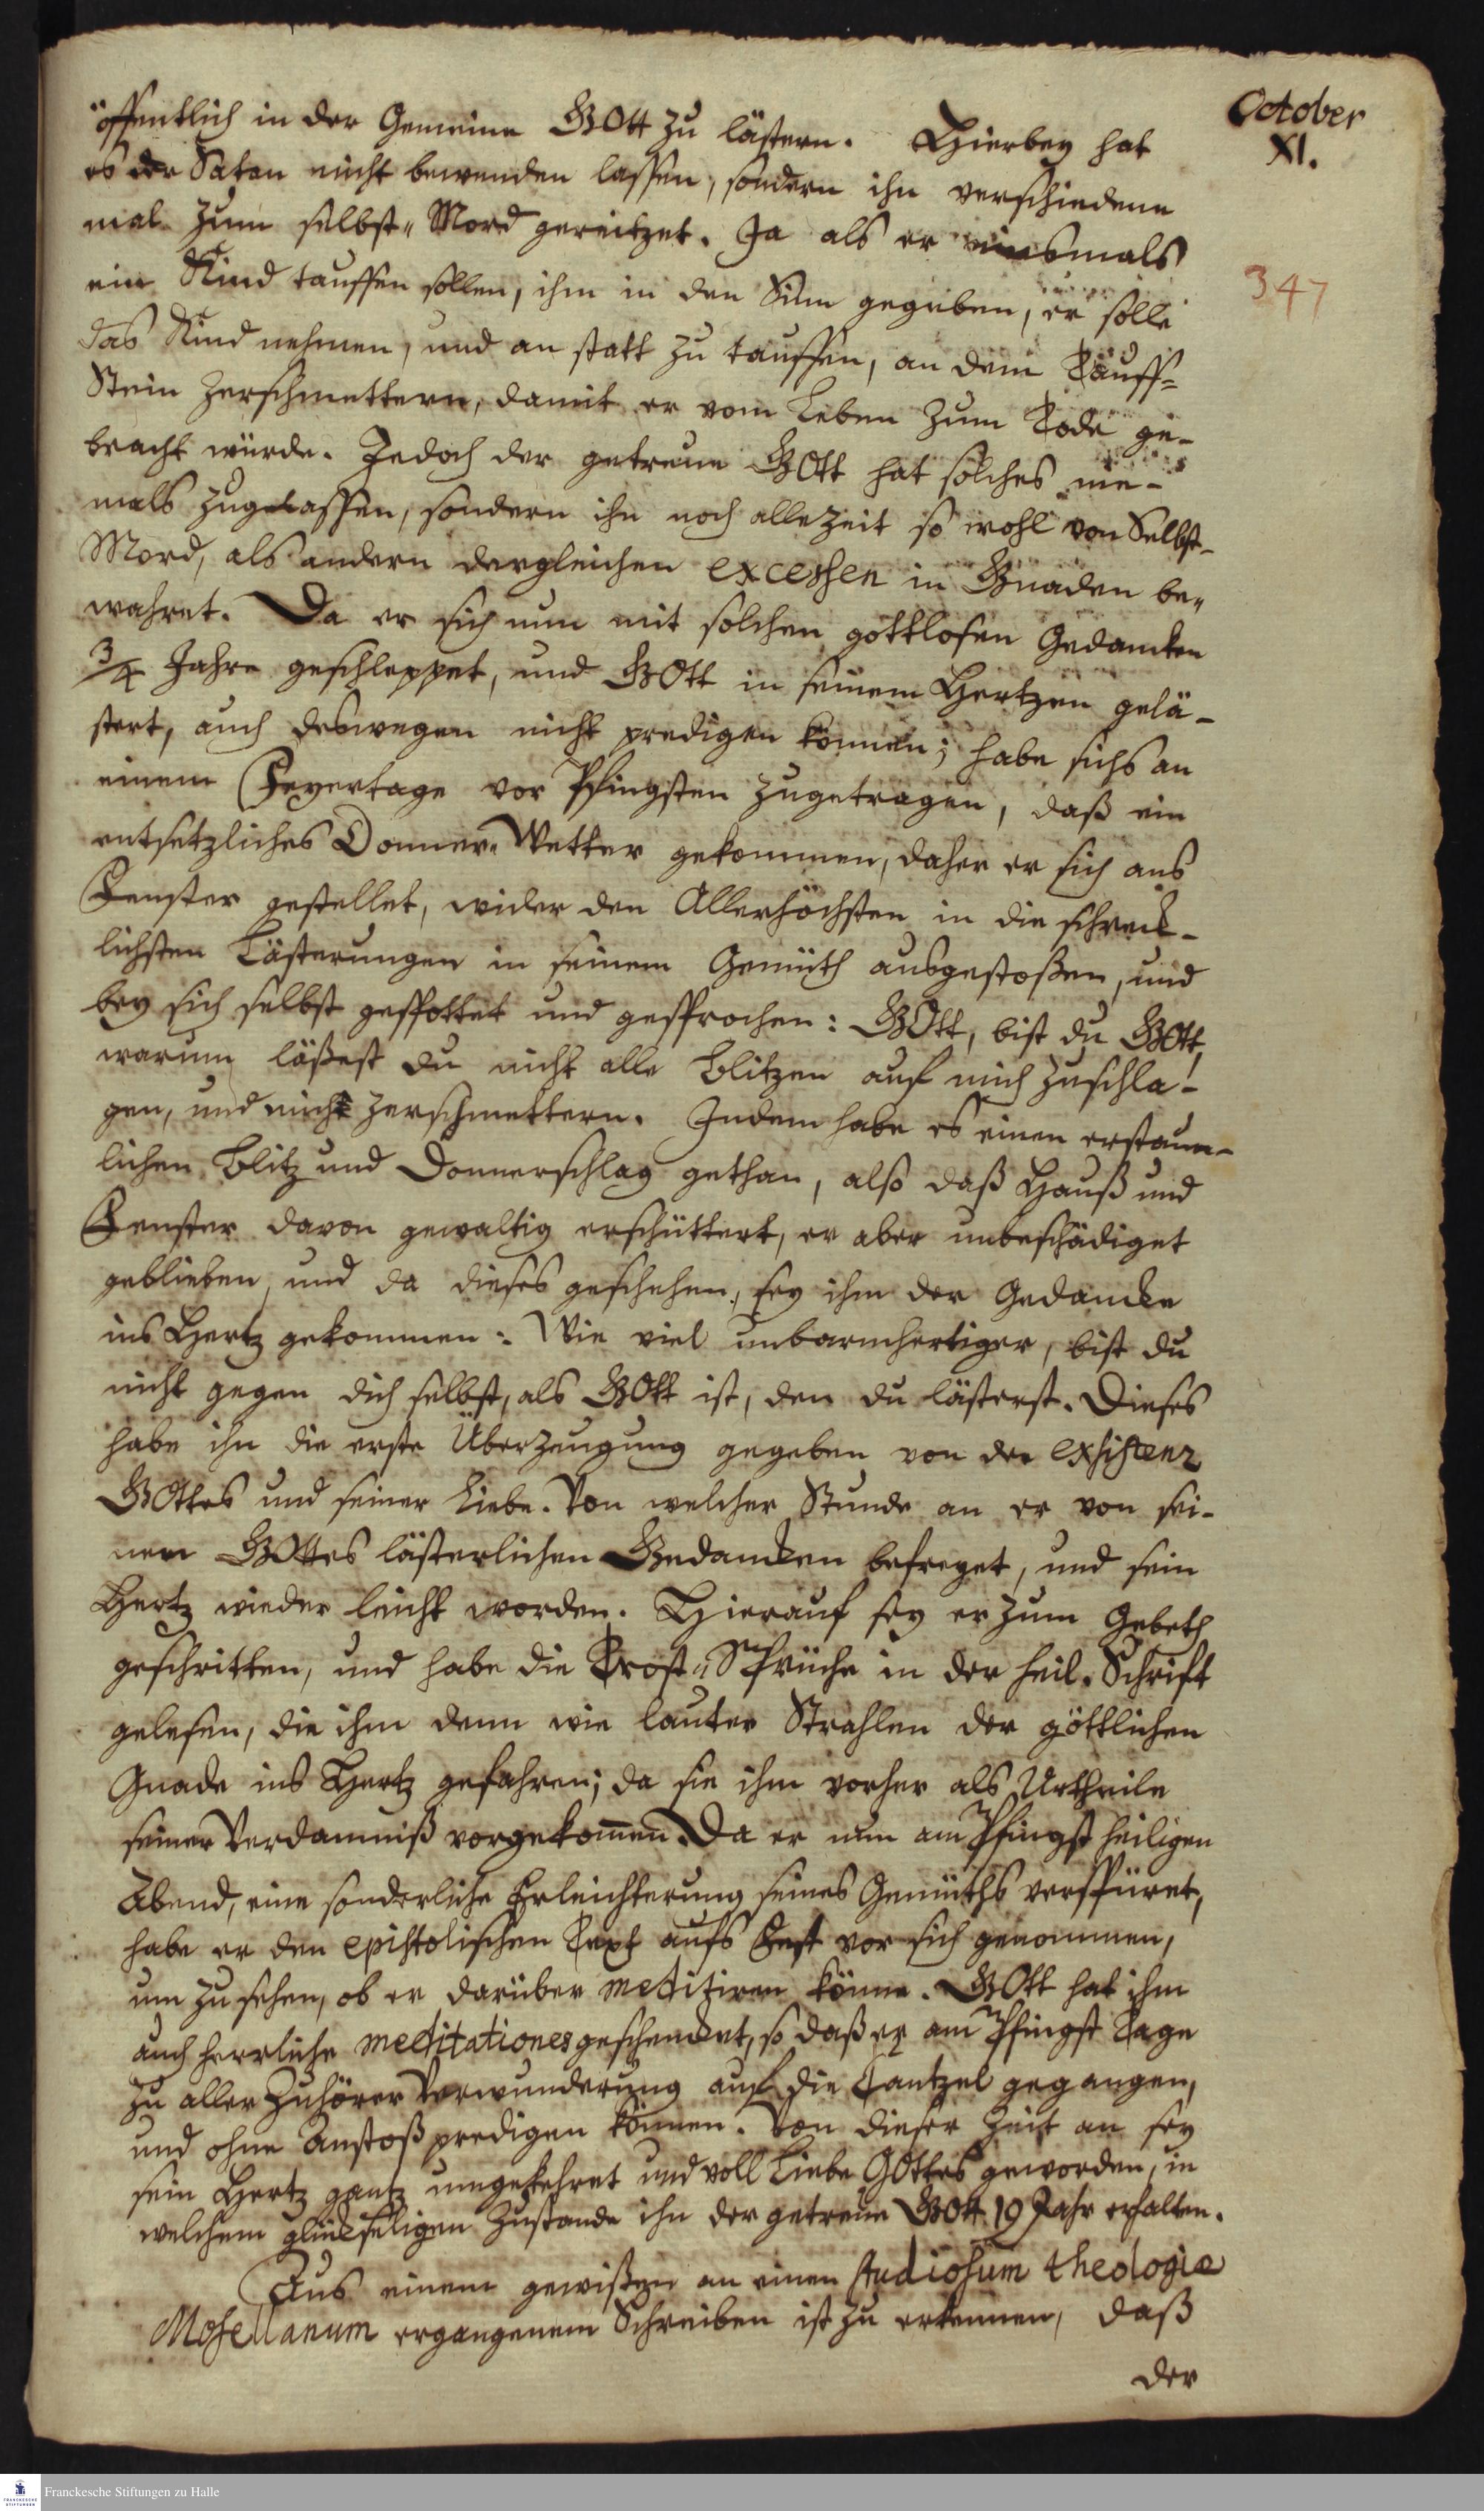 October
XI.
347
öffentlich in der Gemeine GOtt zu lästern. Hierbey hat
es der Satan nicht bewenden lassen, sondern ihn verschiedene
mal zum selbst-Mord gereitzet. Ja als er einsmals
ein Kind tauffen sollen, ihm in den Sinn gegeben, er solle
das Kind nehmen, und an statt zu tauffen, an dem Tauff-
Stein zerschmettern, damit er vom Leben zum Tode ge-
bracht würde. Jedoch der getreue GOtt hat solches nie-
mals zugelassen, sondern ihn noch allezeit so wohl von Selbst-
Mord, als andern dergleichen excessen in Gnaden be-
wahret. Da er sich nun mit solchen gottlosen Gedancken
3/4 Jahre geschleppet, und GOtt in seinem Hertzen gelä-
stert, auch deswegen nicht predigen können; habe sichs an
einem Feyertage vor Pfingsten zugetragen, daß ein
entsetzliches Donner-Wetter gekommen, daher er sich ans
Fenster gestellet, wider den Allerhöchsten in die schreck-
lichsten Lästerungen in seinem Gemüth ausgestoßen, und
bey sich selbst gespottet und gesprochen: GOtt, bist du GOtt,
warum läßest du nicht alle Blitzen auf mich zuschla-
gen, und mich zerschmettern. Indem habe es einen erstaun-
lichen Blitz und Donnerschlag gethan, also daß Hauß und
Fenster davon gewaltig erschüttert, er aber unbeschädiget
geblieben, und da dieses geschehen, sey ihm der Gedancke
ins Hertz gekommen: Wie viel unbarmhertziger, bist du
nicht gegen dich selbst, als GOtt ist, den du lästerst. Dieses
habe ihn die erste Überzeugung gegeben von der exsistenz
GOttes und seiner Liebe. Von welcher Stunde an er von sei-
nen GOttes lästerlichen Gedancken befreyet, und sein
Hertz wieder leicht worden. Hierauf sey er zum Gebeth
geschritten, und habe die Trost-Sprüche in der heil. Schrift
gelesen, die ihm denn wie lauter Strahlen der göttlichen
Gnade ins Hertz gefahren; da sie ihm vorher als Urtheile
seiner Verdamniß vorgekom̄en. Da er nun am Pfingst heiligen
Abend, eine sonderliche Erleichterung seines Gemüths verspüret,
habe er den epistolischen Text aufs Fest vor sich genommen,
um zu sehen, ob er darüber meditiren könne. GOtt hat ihm
auch herrliche meditationes geschencket, so daß er am Pfingst Tage
zu aller Zuhörer Verwunderung auf die Cantzel gegangen,
und ohne Anstoß predigen können. Von dieser Zeit an sey
sein Hertz gantz umgekehret und voll Liebe GOttes geworden, in
welchem glückseligen Zustande ihn der getreue GOtt 19 Jahr erhalten.
Aus einem gewißen an einen studiosum theologiæ
Mosellanum ergangenem Schreiben ist zu erkennen, daß
der
Franckesche Stiftungen zu Halle